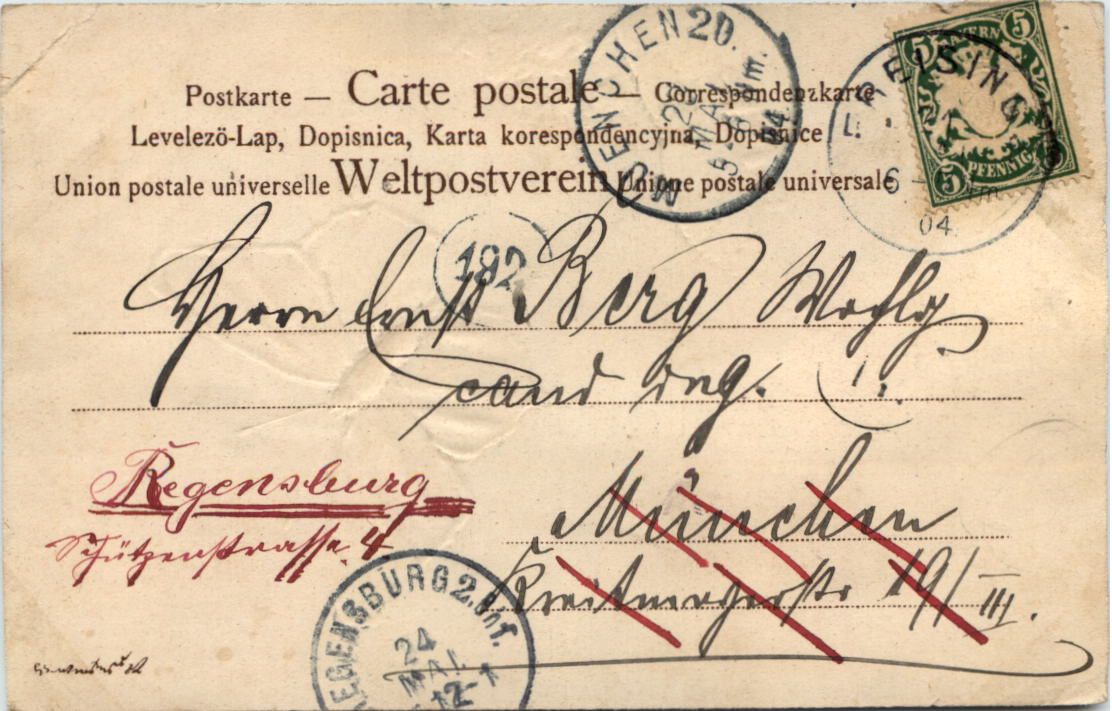 Postkarte — Carte postale — Correspondenzkarte
Levelezö-Lap, Dopisnica, Karta korespondencyjna, Dopisnice
Union postale universelle Weltpostverein Unione postale universale
MUENCHEN 20.
MAI
5-6 Nm.
04
FREISING
04
BAYERN
5
5
PFENNIG
5
192
Herrn Ernst Berg Wohlg
cand
München
Kreitmayerstr 19/III.
Regensburg
Schützenstrasse 4
REGENSBURG 2. Bhf.
24
MAI